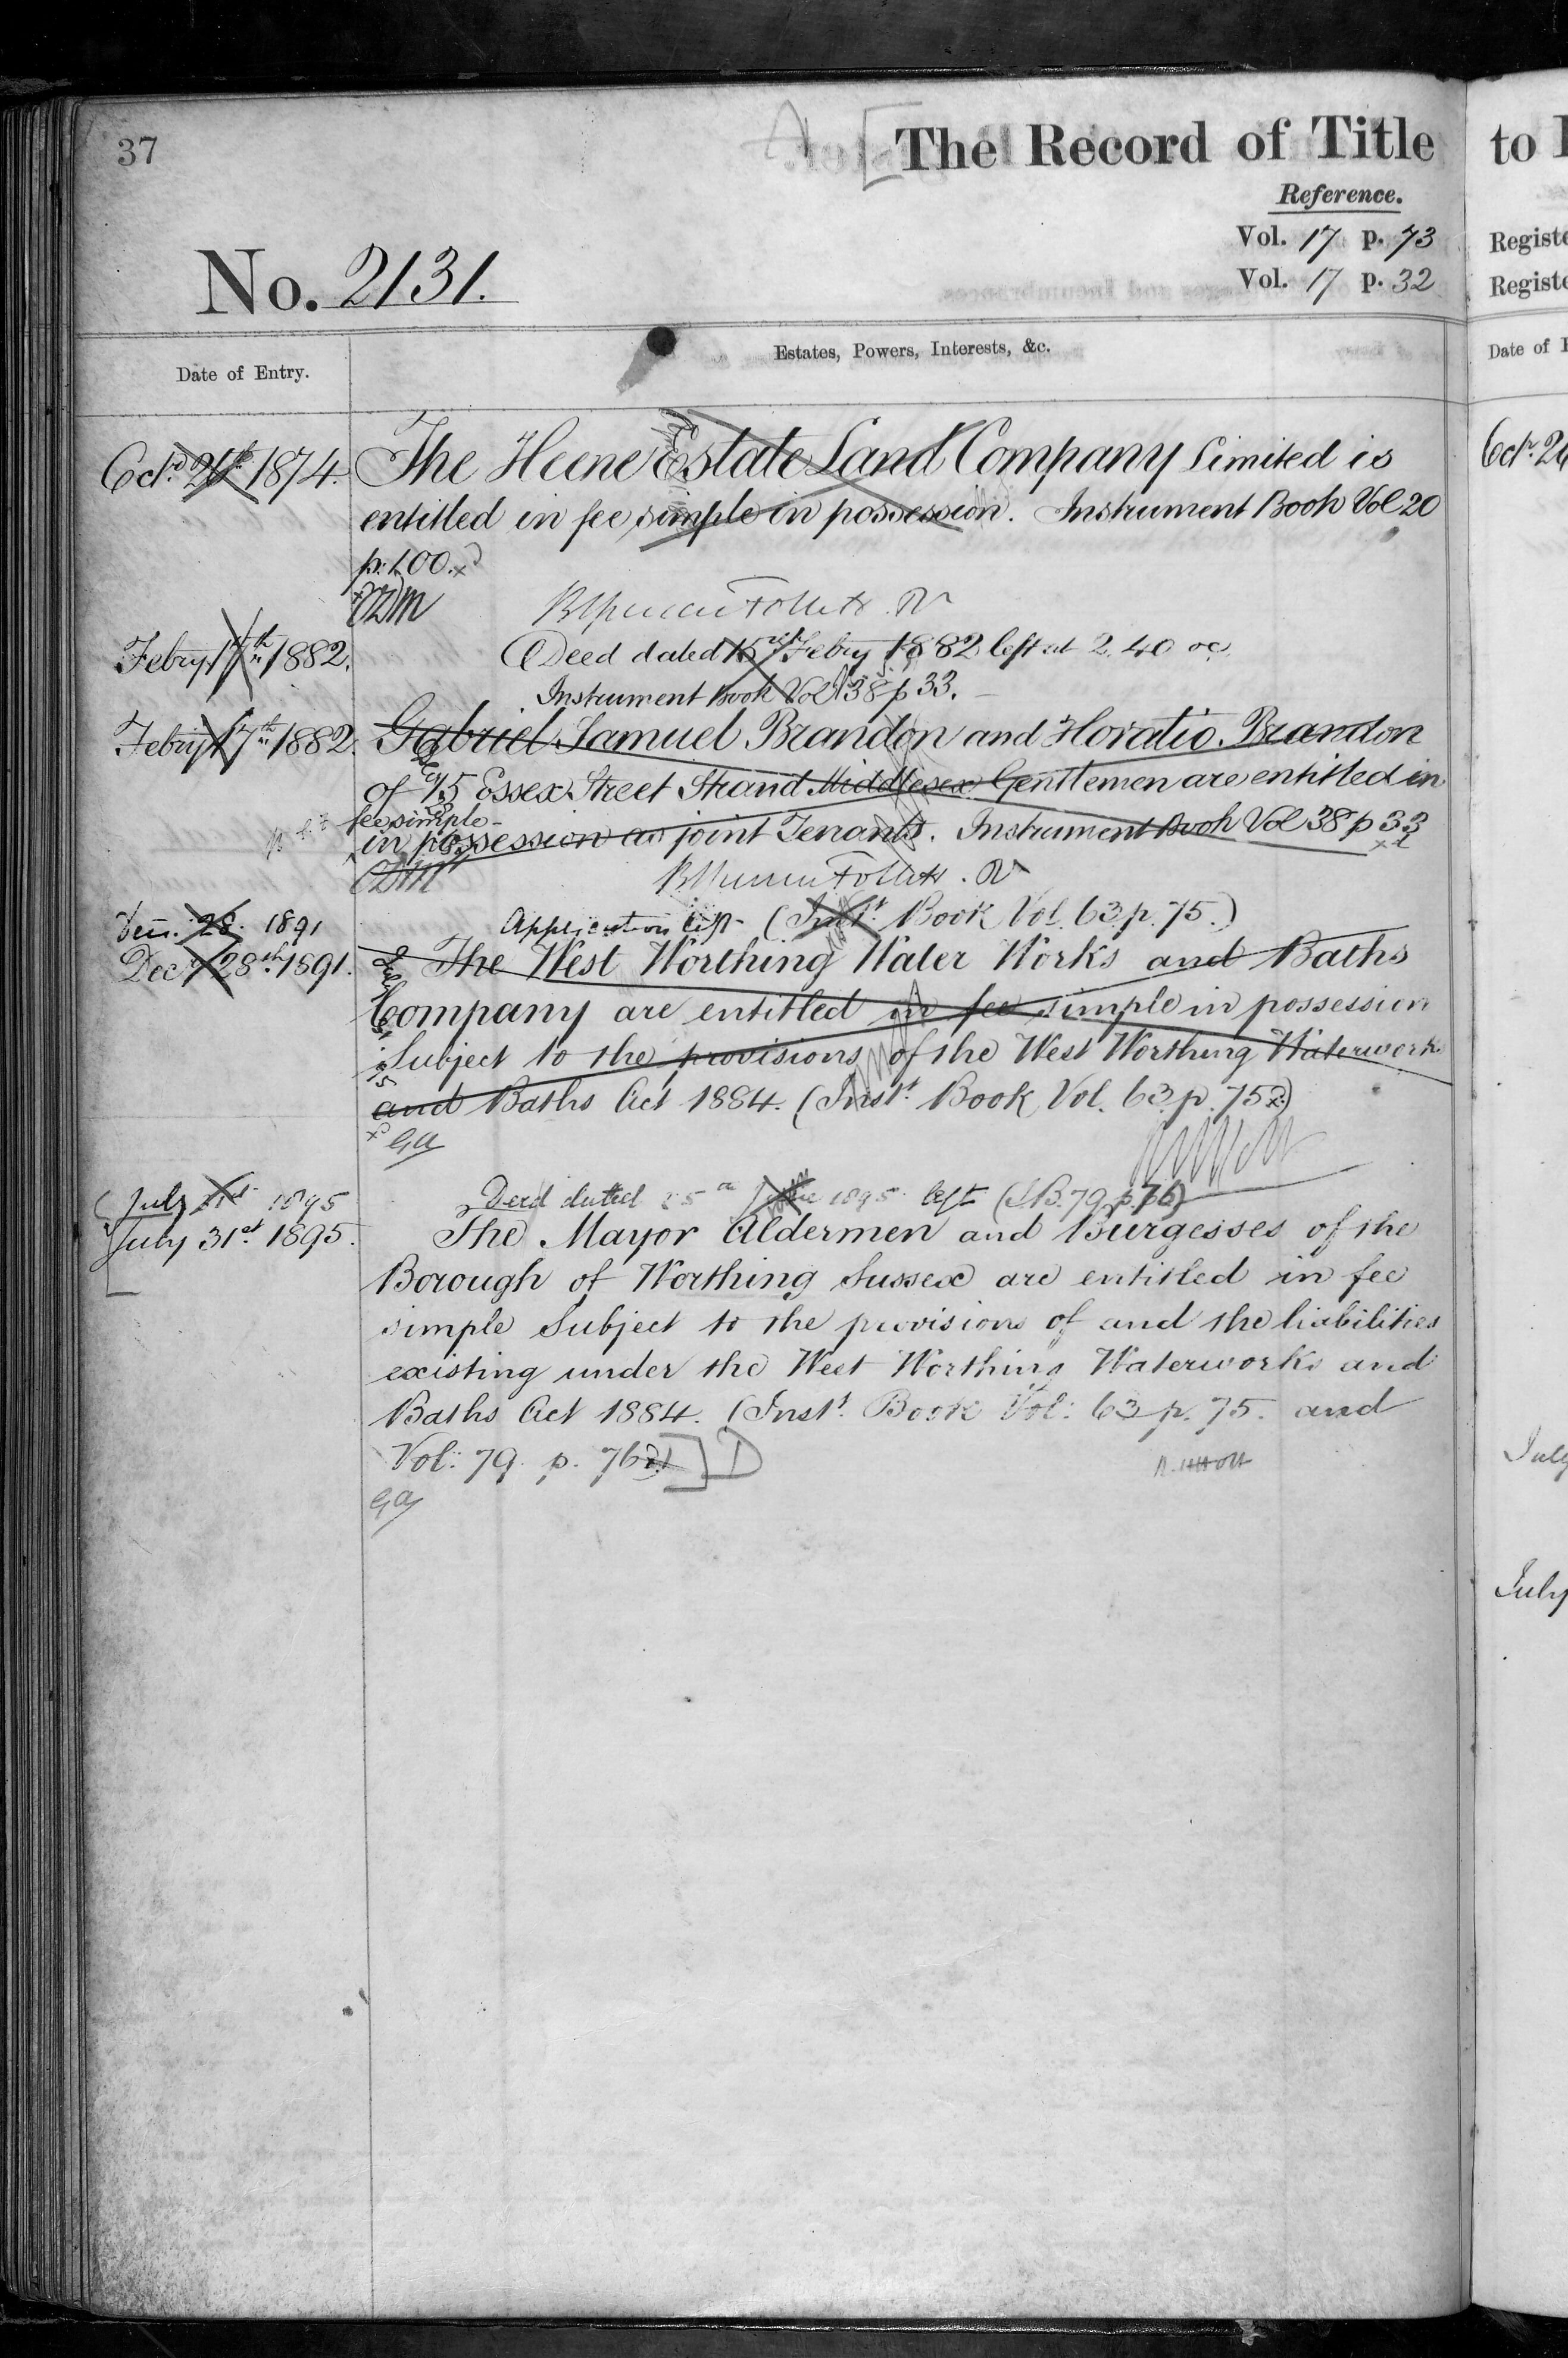 37
The Record of Title
Reference.
Vol. 17 p. 73
Vol. 17 p. 32
No. 2131.
Date of Entry.
Estates, Powers, Interests, &c.
1874. The Heene Estate Land Company Limited is
entitled in fee simple in possession. Instrument Book Vol 20
p. 100.
Febry 17th 1882. Deed dated 15th Febry 1882 left at 2.40
Instrument Book Vol 38 p 33.
Febry 17th 1882. Gabriel Samuel Brandon and Horatio Brandon
of 15 Essex Street Strand Middlesex Gentlemen are entitled in
fee simple
in possession as joint Tenants. Instrument Book Vol 38 p 33
28. 1891 Application left (Inst. Book Vol. 63 p. 75.)
Decr 28th 1891. The West Worthing Water Works and Baths
Company are entitled in fee simple in possession
Subject to the provisions of the West Worthing Waterworks
and Baths Act 1884. (Inst. Book Vol. 63 p. 75)
GA
July 31st 1895 Deed dated 25th June 1895 left (I.B. 79. p. 76)
July 31st 1895. The Mayor Aldermen and Burgesses of the
Borough of Worthing Sussex are entitled in fee
simple Subject to the provisions of and the liabilities
existing under the West Worthing Waterworks and
Baths Act 1884. (Inst. Book Vol: 63 p. 75. and
Vol: 79. p. 76)] D
GA
to
Registe
Registe
Date of
Octr 26
July
July